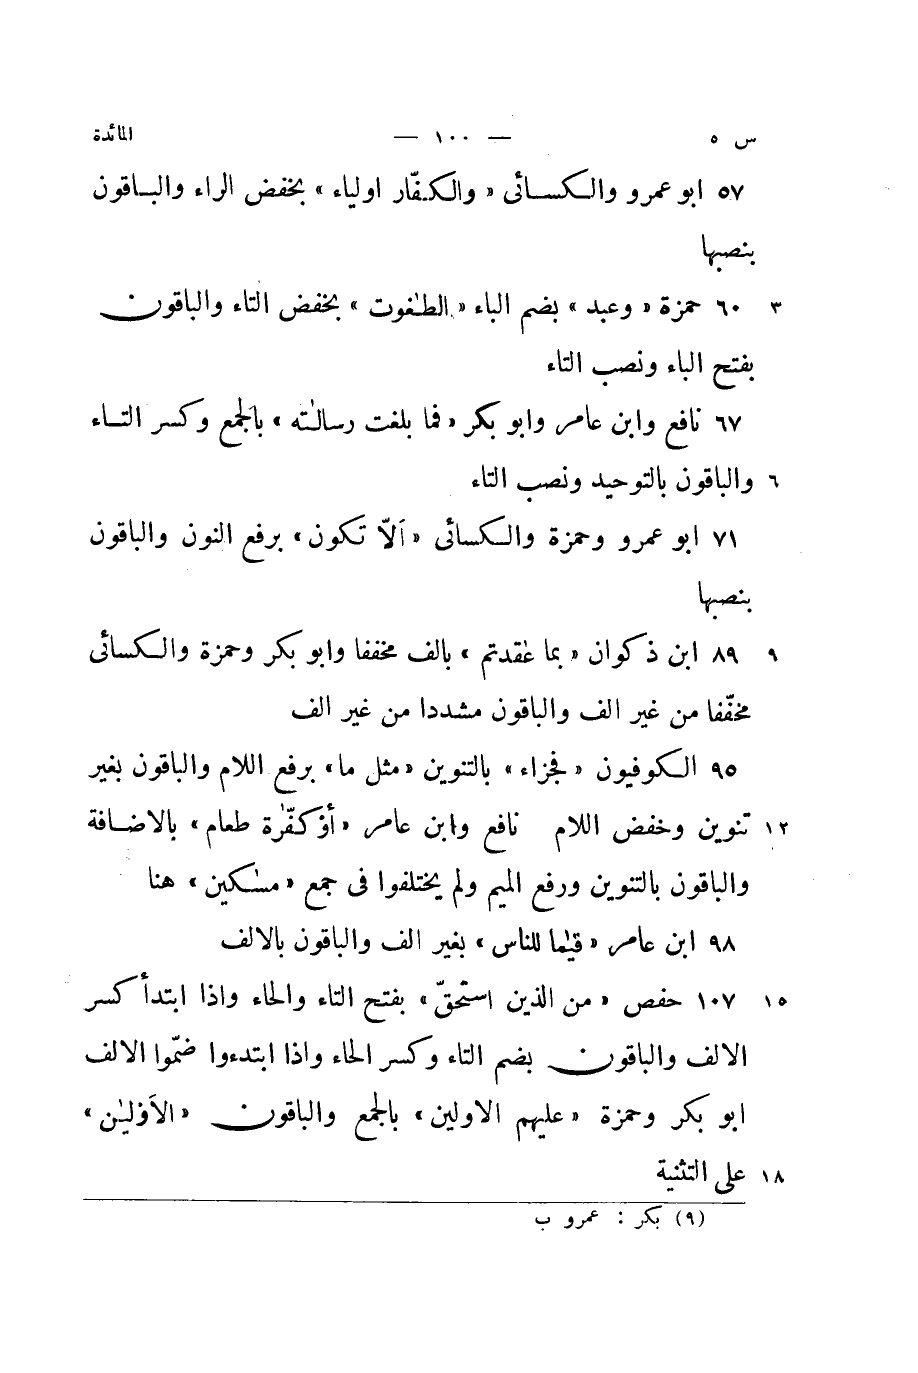 س ٥ — ١٠٠ — المائدة
٥٧ ابو عمرو والكسائى « والكفّار اولياء » بخفض الراء والباقون
بنصبها
٣ ٦٠ حمزة « وعبد » بضم الباء « الطٰغوت » بخفض التاء والباقون
بفتح الباء ونصب التاء
٦٧ نافع وابن عامر وابو بكر « فما بلغت رسالٰته » بالجمع وكسر التاء
٦ والباقون بالتوحيد ونصب التاء
٧١ ابو عمرو وحمزة والكسائى « اَلّا تكون » برفع النون والباقون
بنصبها
٩ ٨٩ ابن ذكوان « بما عٰقدتم » بالف مخففا وابو بكر وحمزة والكسائى
مخفّفا من غير الف والباقون مشددا من غير الف
٩٥ الكوفيون « فجزاء » بالتنوين « مثل ما » برفع اللام والباقون بغير
١٢ تنوين وخفض اللام نافع وابن عامر « أوْ كفّٰرة طعام » بالاضافة
والباقون بالتنوين ورفع الميم ولم يختلفوا فى جمع « مسٰكين » هنا
٩٨ ابن عامر « قيٰما للناس » بغير الف والباقون بالالف
١٥ ١٠٧ حفص « من الذين استحقّ » بفتح التاء والحاء واذا ابتدأ كسر
الالف والباقون بضم التاء وكسر الحاء واذا ابتدءوا ضمّوا الالف
ابو بكر وحمزة « عليهم الاولين » بالجمع والباقون « الاَوْليٰن »
١٨ على التثنية
(٩) بكر : عمرو ب